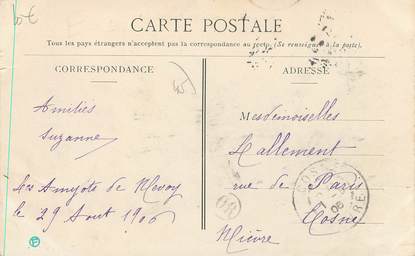 CARTE POSTALE
Tous les pays étrangers n'acceptent pas la correspondance au recto. (Se renseigner à la poste).
CORRESPONDANCE
ADRESSE
Amitiés
Suzanne
Les Amyots de
le 29 Aout 1906
Mesdemoiselles
Lallement
rue de Paris
Cosne
Nièvre
OR